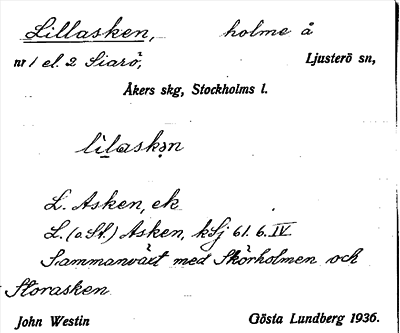 Lillasken, holme å
nr 1 el. 2 Siarö, Ljusterö sn,
Åkers skg, Stockholms l.
lilaskən
L. Asken, ek
L. (o St.) Asken, kSj 61. 6. IV.
Sammanväxt med Skörholmen och
Storasken
John Westin Gösta Lundberg 1936.